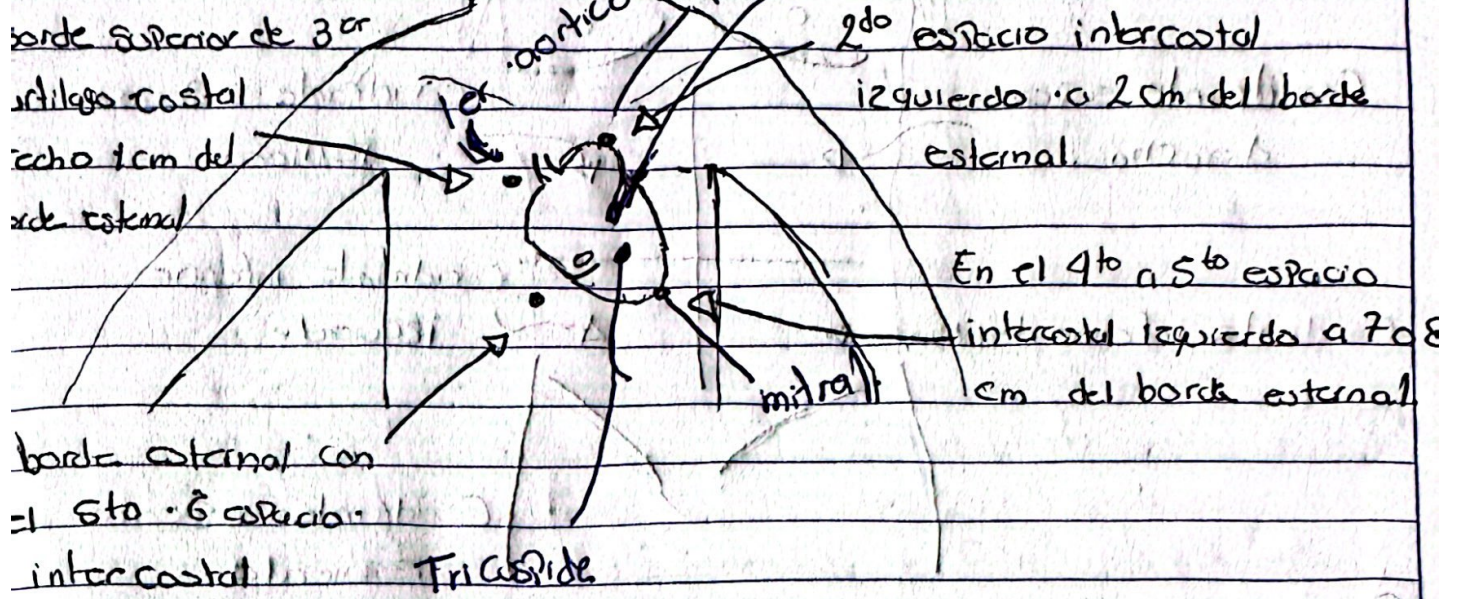 borde superior de 3er
cartilago costal
echo 1 cm del
borde esternal
aortico
1er
2do espacio intercostal
izquierdo a 2 cm del borde
esternal.
En el 4to a 5to espacio
intercostal izquierdo a 7 o 8
cm del borde esternal
mitral
borde esternal con
el 5to · 6 espacio
intercostal
Tricuspide